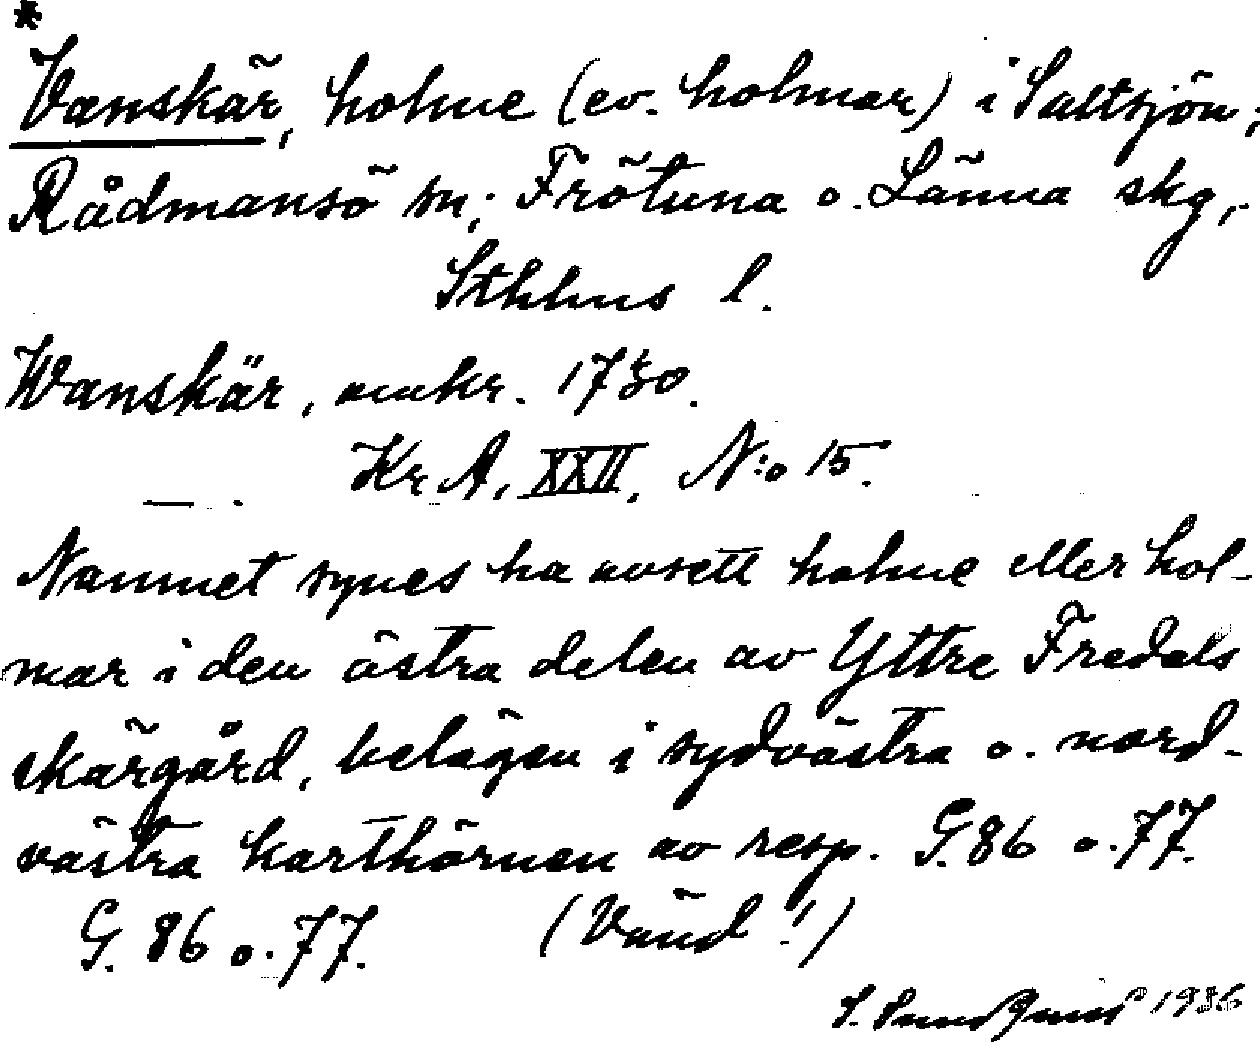 *
Vanskär, holme (ev. holmar) i Saltsjön;
Rådmansö sn; Frötuna o. Länna skg,
Sthlms l.
Wanskär, omkr. 1730.
Kr A, XXII, N:o 15.
Namnet synes ha avsett holme eller hol-
mar i den östra delen av Yttre Fredels
skärgård, belägen i sydvästra o. nord-
västra karthörnen av resp. G. 86 o. 77.
G. 86 o. 77. (Vänd!)
S. Sundquist 1936